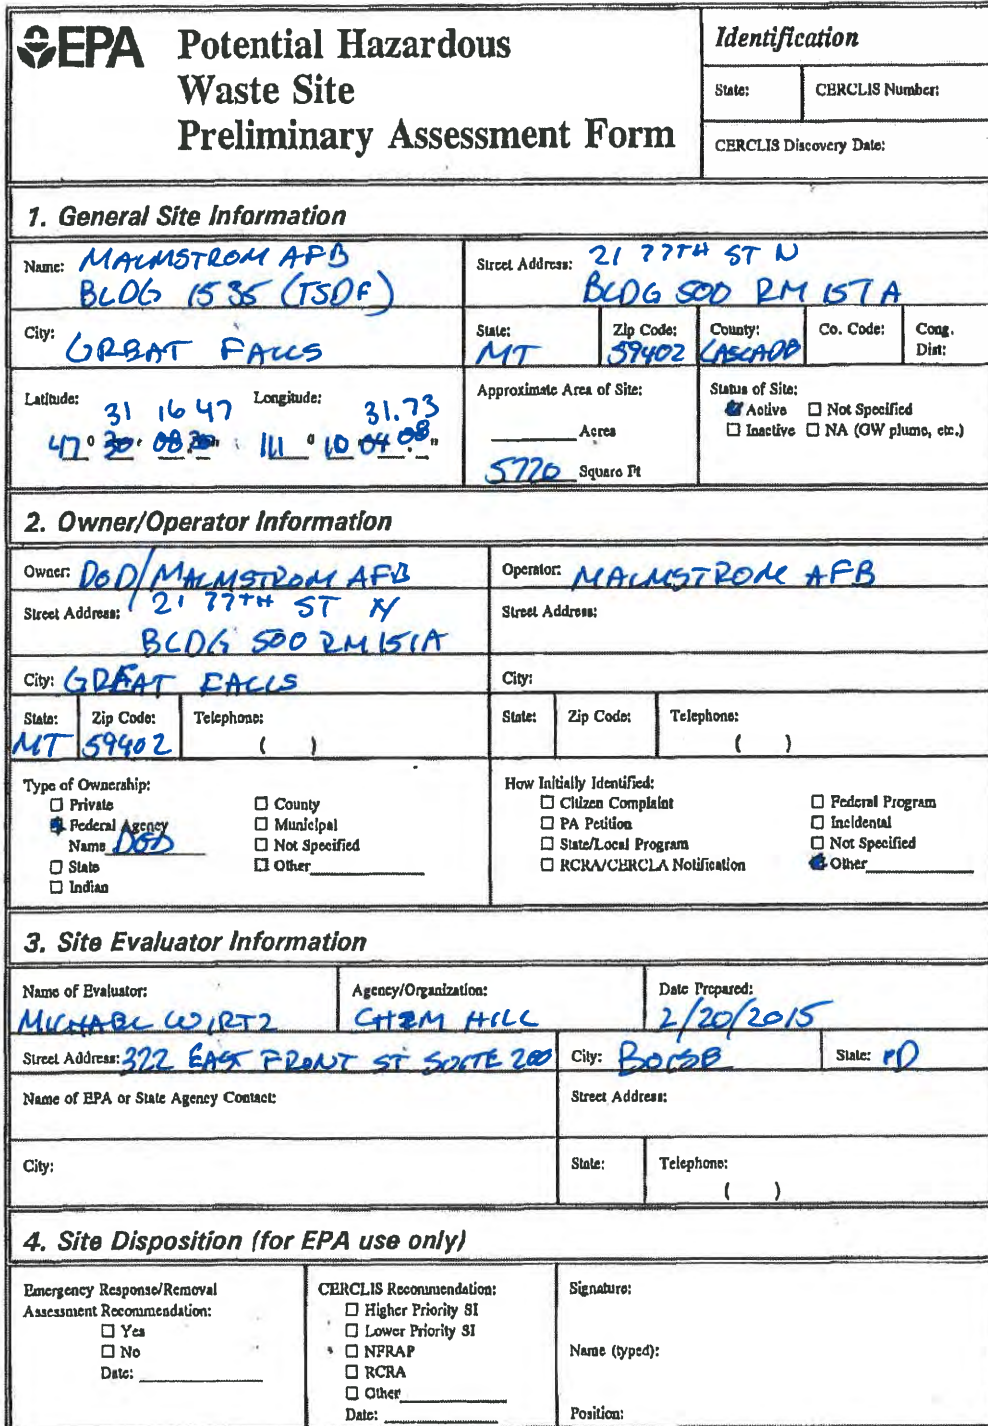 EPA Potential Hazardous
Waste Site
Preliminary Assessment Form
Identification
State: CERCLIS Number:
CERCLIS Discovery Date:
1. General Site Information
Name: MALMSTROM AFB
BLDG 1535 (TSDF)
Street Address: 21 77TH ST N
BLDG 500 RM 157A
City: GREAT FALLS
State: MT
Zip Code: 59402
County: CASCADE
Co. Code:
Cong. Dist:
Latitude: 31 16 47
47° 30' 08.30"
Longitude: 31.73
111° 10 04.08"
Approximate Area of Site:
Acres
5720 Square Ft
Status of Site:
Active □ Not Specified
□ Inactive □ NA (GW plume, etc.)
2. Owner/Operator Information
Owner: DOD/MALMSTROM AFB
Street Address: 21 77TH ST N
BLDG 500 RM 151A
City: GREAT FALLS
State: MT
Zip Code: 59402
Telephone: ( )
Operator: MALMSTROM AFB
Street Address:
City:
State: Zip Code: Telephone: ( )
Type of Ownership:
□ Private
Federal Agency
Name DOD
□ State
□ Indian
□ County
□ Municipal
□ Not Specified
□ Other
How Initially Identified:
□ Citizen Complaint
□ PA Petition
□ State/Local Program
□ RCRA/CERCLA Notification
□ Federal Program
□ Incidental
□ Not Specified
Other
3. Site Evaluator Information
Name of Evaluator: MICHAEL WIRTZ
Agency/Organization: CH2M HILL
Date Prepared: 2/20/2015
Street Address: 322 EAST FRONT ST SUITE 200
City: BOISE
State: ID
Name of EPA or State Agency Contact:
Street Address:
City:
State: Telephone: ( )
4. Site Disposition (for EPA use only)
Emergency Response/Removal
Assessment Recommendation:
□ Yes
□ No
Date:
CERCLIS Recommendation:
□ Higher Priority SI
□ Lower Priority SI
□ NFRAP
□ RCRA
□ Other
Date:
Signature:
Name (typed):
Position: